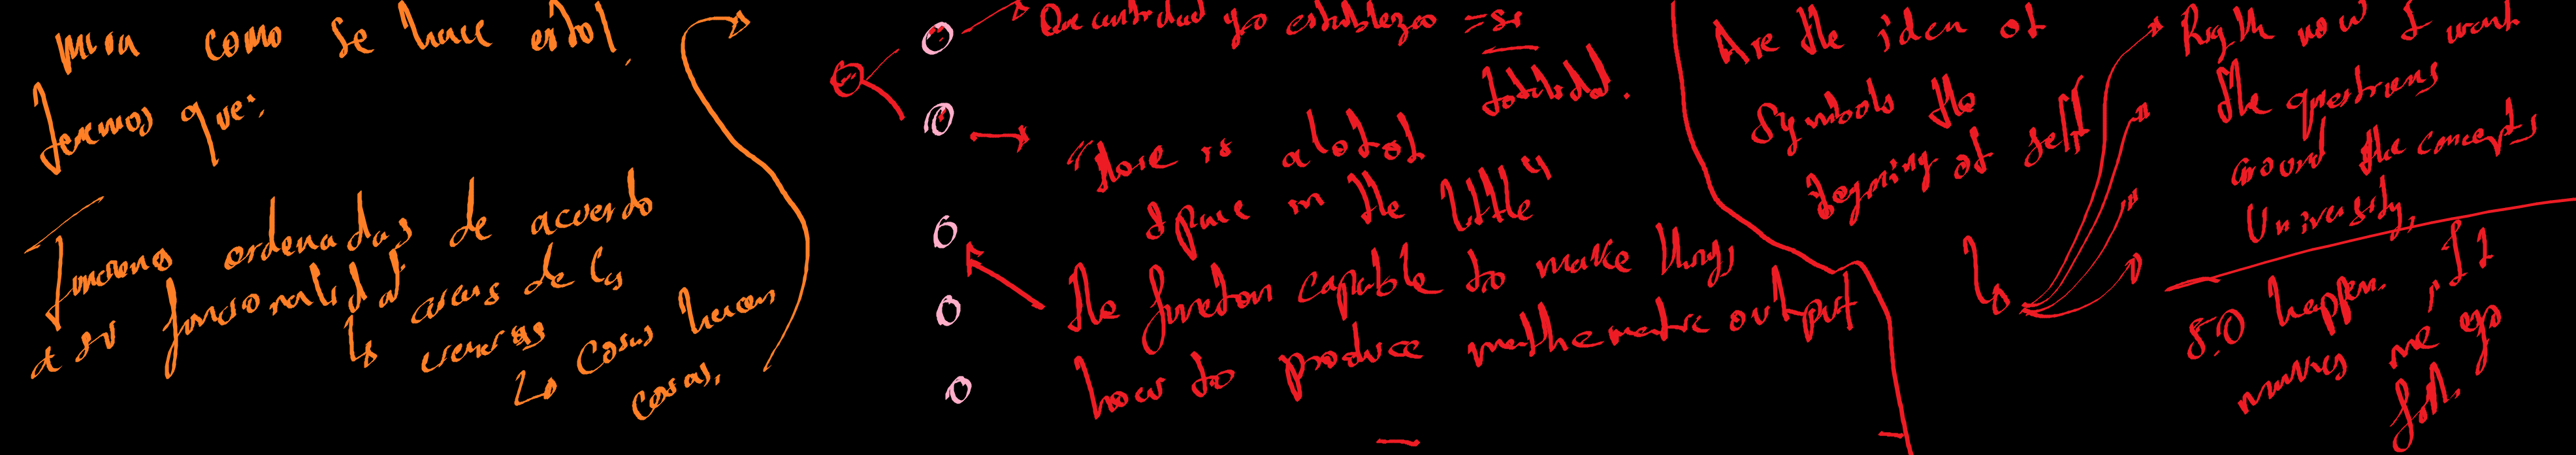 mira como se hace esto!
Tenemos que:
Funciones ordenadas de acuerdo
a su funcionalidad.
areas de las
ciencias
Cosas hacen
cosas.
Que cantidad yo establezco = su
totalidad.
"there is a lot of
space in the little"
the function capable to make things
how to produce mathematic output
Are the idea of
Symbols the
begning of self
Rigth now I want
the questions
around the concepts
University,
8:0 happen. if I
me go
full.